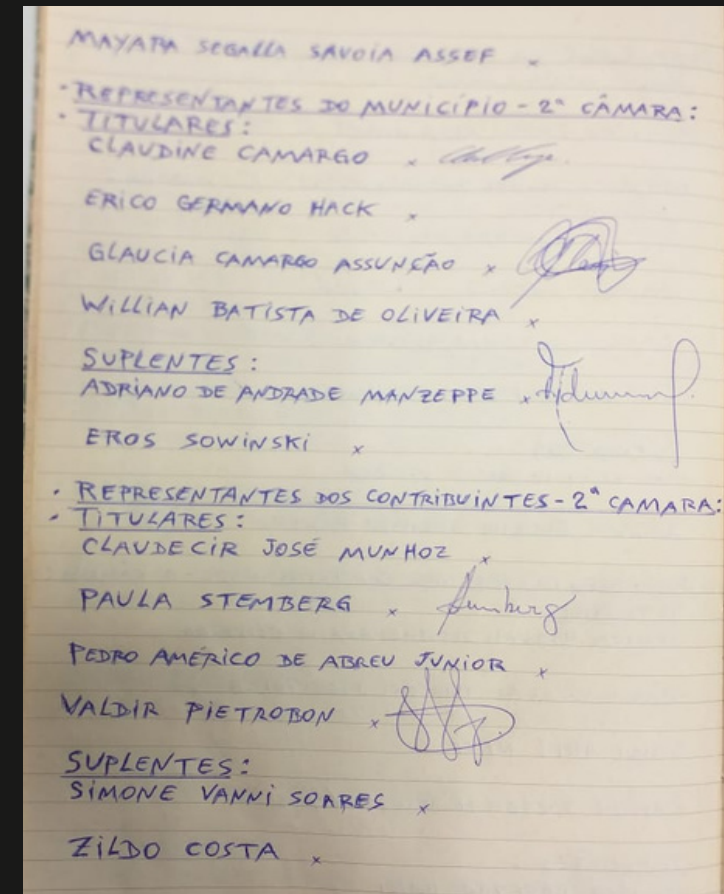 MAYARA SEGALLA SAVOIA ASSEF x
· REPRESENTANTES DO MUNICÍPIO - 2ª CÂMARA:
· TITULARES:
CLAUDINE CAMARGO x
ERICO GERMANO HACK x
GLAUCIA CAMARGO ASSUNÇÃO x
WILLIAN BATISTA DE OLIVEIRA x
SUPLENTES:
ADRIANO DE ANDRADE MANZEPPE x
EROS SOWINSKI x
· REPRESENTANTES DOS CONTRIBUINTES - 2ª CAMARA:
· TITULARES:
CLAUDECIR JOSÉ MUNHOZ x
PAULA STEMBERG x
PEDRO AMÉRICO DE ABREU JUNIOR x
VALDIR PIETROBON x
SUPLENTES:
SIMONE VANNI SOARES x
ZILDO COSTA x